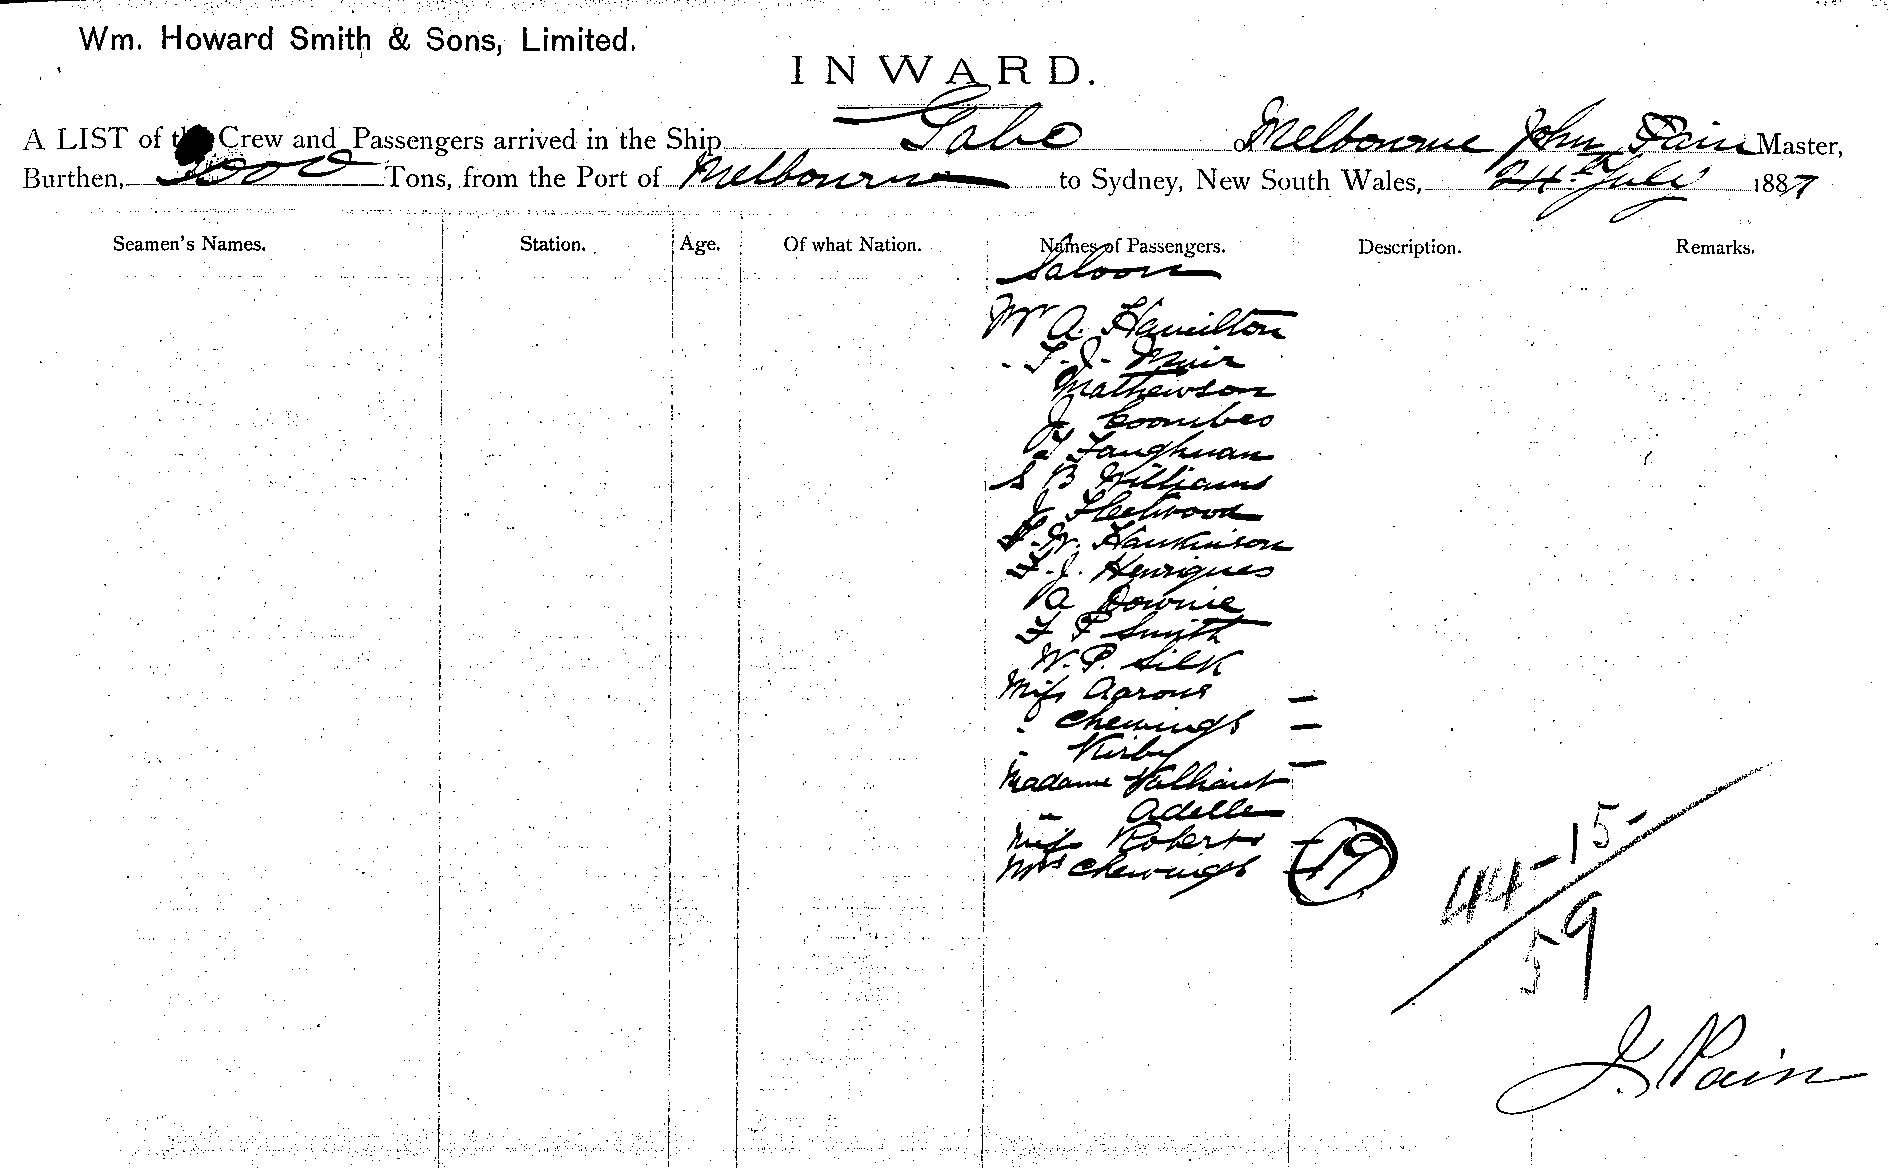 Wm. Howard Smith & Sons, Limited.
INWARD.
A LIST of the Crew and Passengers arrived in the Ship Gabo of Melbourne John Pain Master,
Burthen, Tons, from the Port of Melbourne to Sydney, New South Wales, 24th July 1887
Seamen's Names. Station. Age. Of what Nation. Names of Passengers. Description. Remarks.
Saloon
Mr A. Hamilton
" F. J. Muir
Mathewson
J Coombes
Faughnan
S B Williams
J Fleetwood
F. W. Hankinson
F. J. Henriques
A Downie
F P Smith
W. P. Silk
Miss Aarons –
" Chewings –
" Kirby –
Madame
" Adelle
Miss Roberts –
Mrs Chewings – 19
44-15-
59
J. Pain